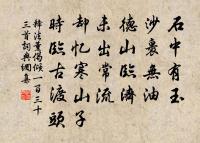 石中有玉
沙裏無油
德山臨濟
未出常流
却憶寒山子
時臨古渡頭
釋法薰偈傾一百三十
三首詞典網集